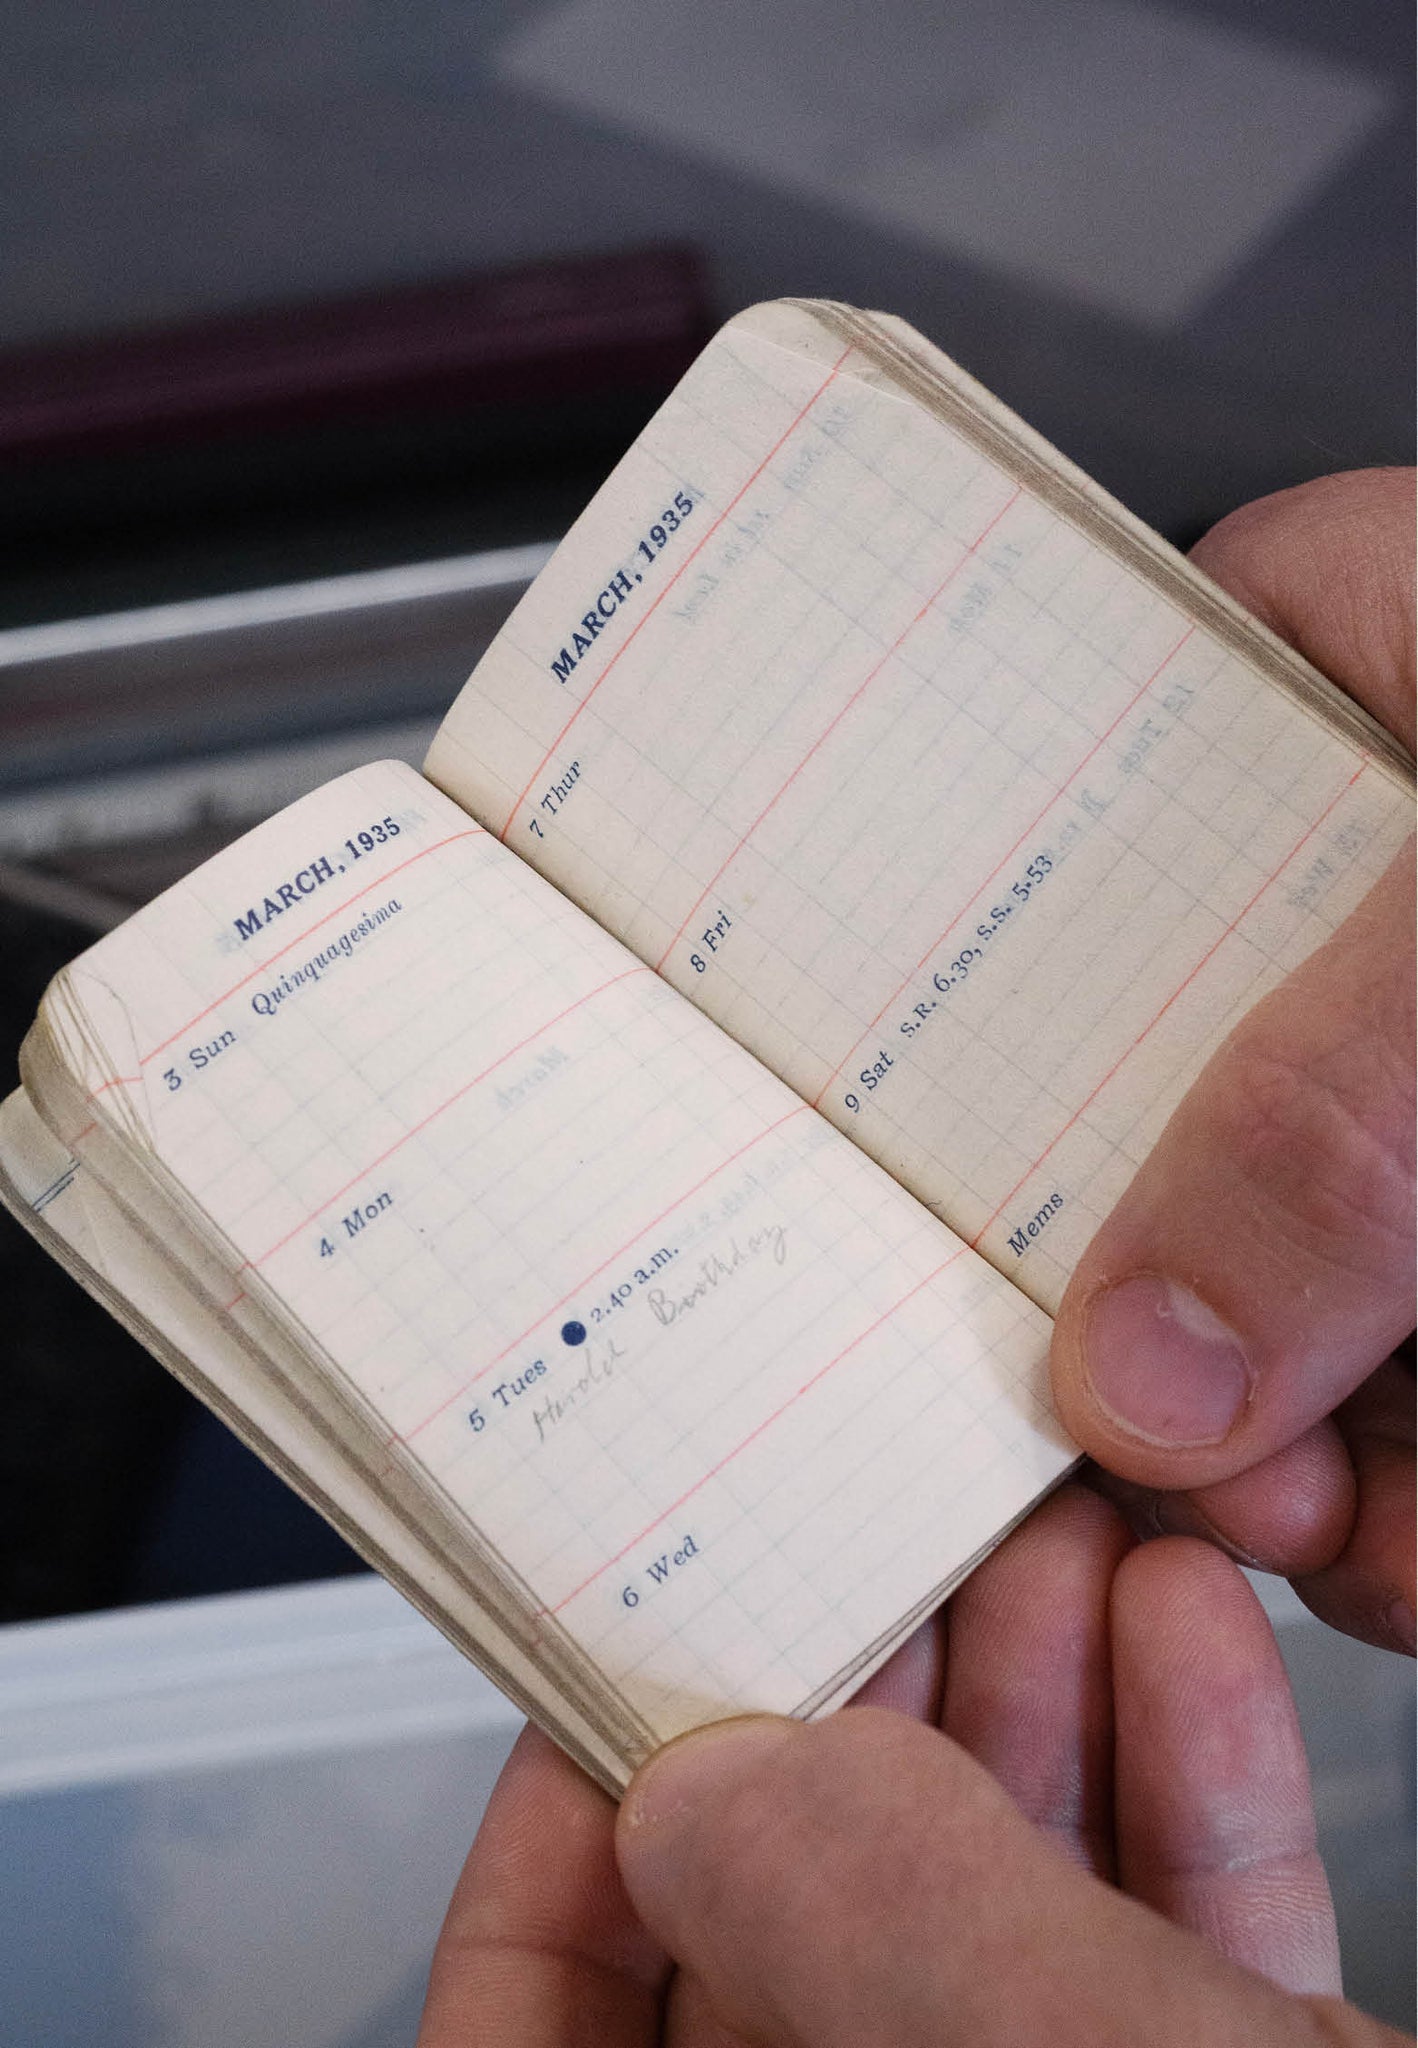 MARCH, 1935
3 Sun Quinquagesima
4 Mon
5 Tues ● 2.40 a.m.
Harold Boothday
6 Wed
MARCH, 1935
7 Thur
8 Fri
9 Sat S.R. 6.30, S.S. 5.53
Mems